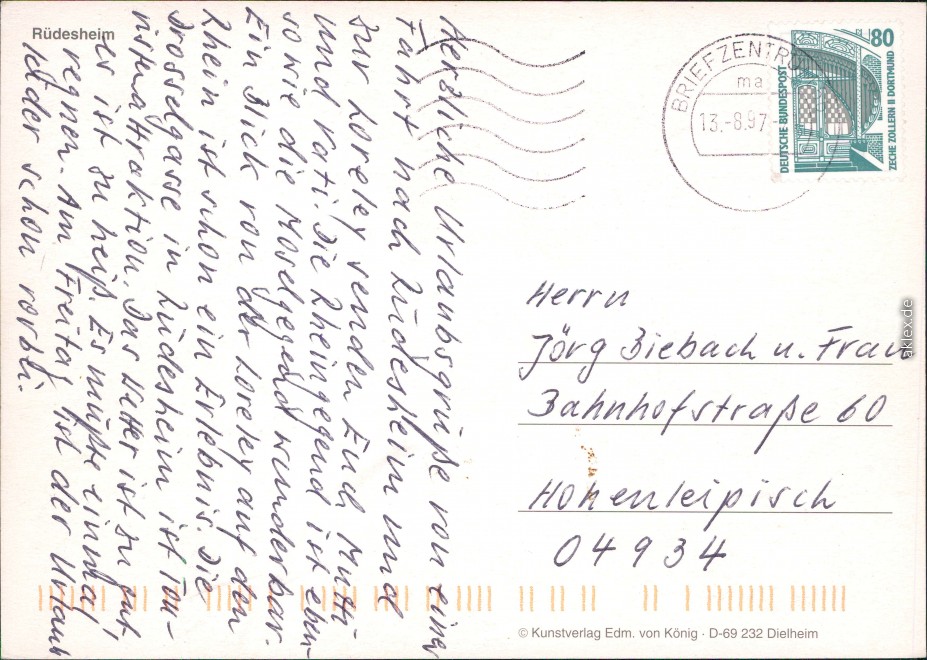 Rüdesheim
Herzliche Urlaubsgrüße von einer
Fahrt nach Rüdesheim und
zur Loreley senden Euch Mutti
und Vati. Die Rheingegend ist eben-
so wie die Moselgegend wunderbar.
Ein Blick von der Loreley auf den
Rhein ist schon ein Erlebnis. Die
Drosselgasse in Rüdesheim ist Tou-
ristenattraktion. Das Wetter ist zu gut,
es ist zu heiß. Es müßte einmal
regnen. Am Freitag ist der Urlaub
leider schon vorbei.
BRIEFZENTRU
ma
13.-8.97
80
DEUTSCHE BUNDESPOST
ZECHE ZOLLERN II DORTMUND
Herrn
Jörg Biebach u. Frau
Bahnhofstraße 60
Hohenleipisch
04934
© Kunstverlag Edm. von König · D-69 232 Dielheim
aklex.de